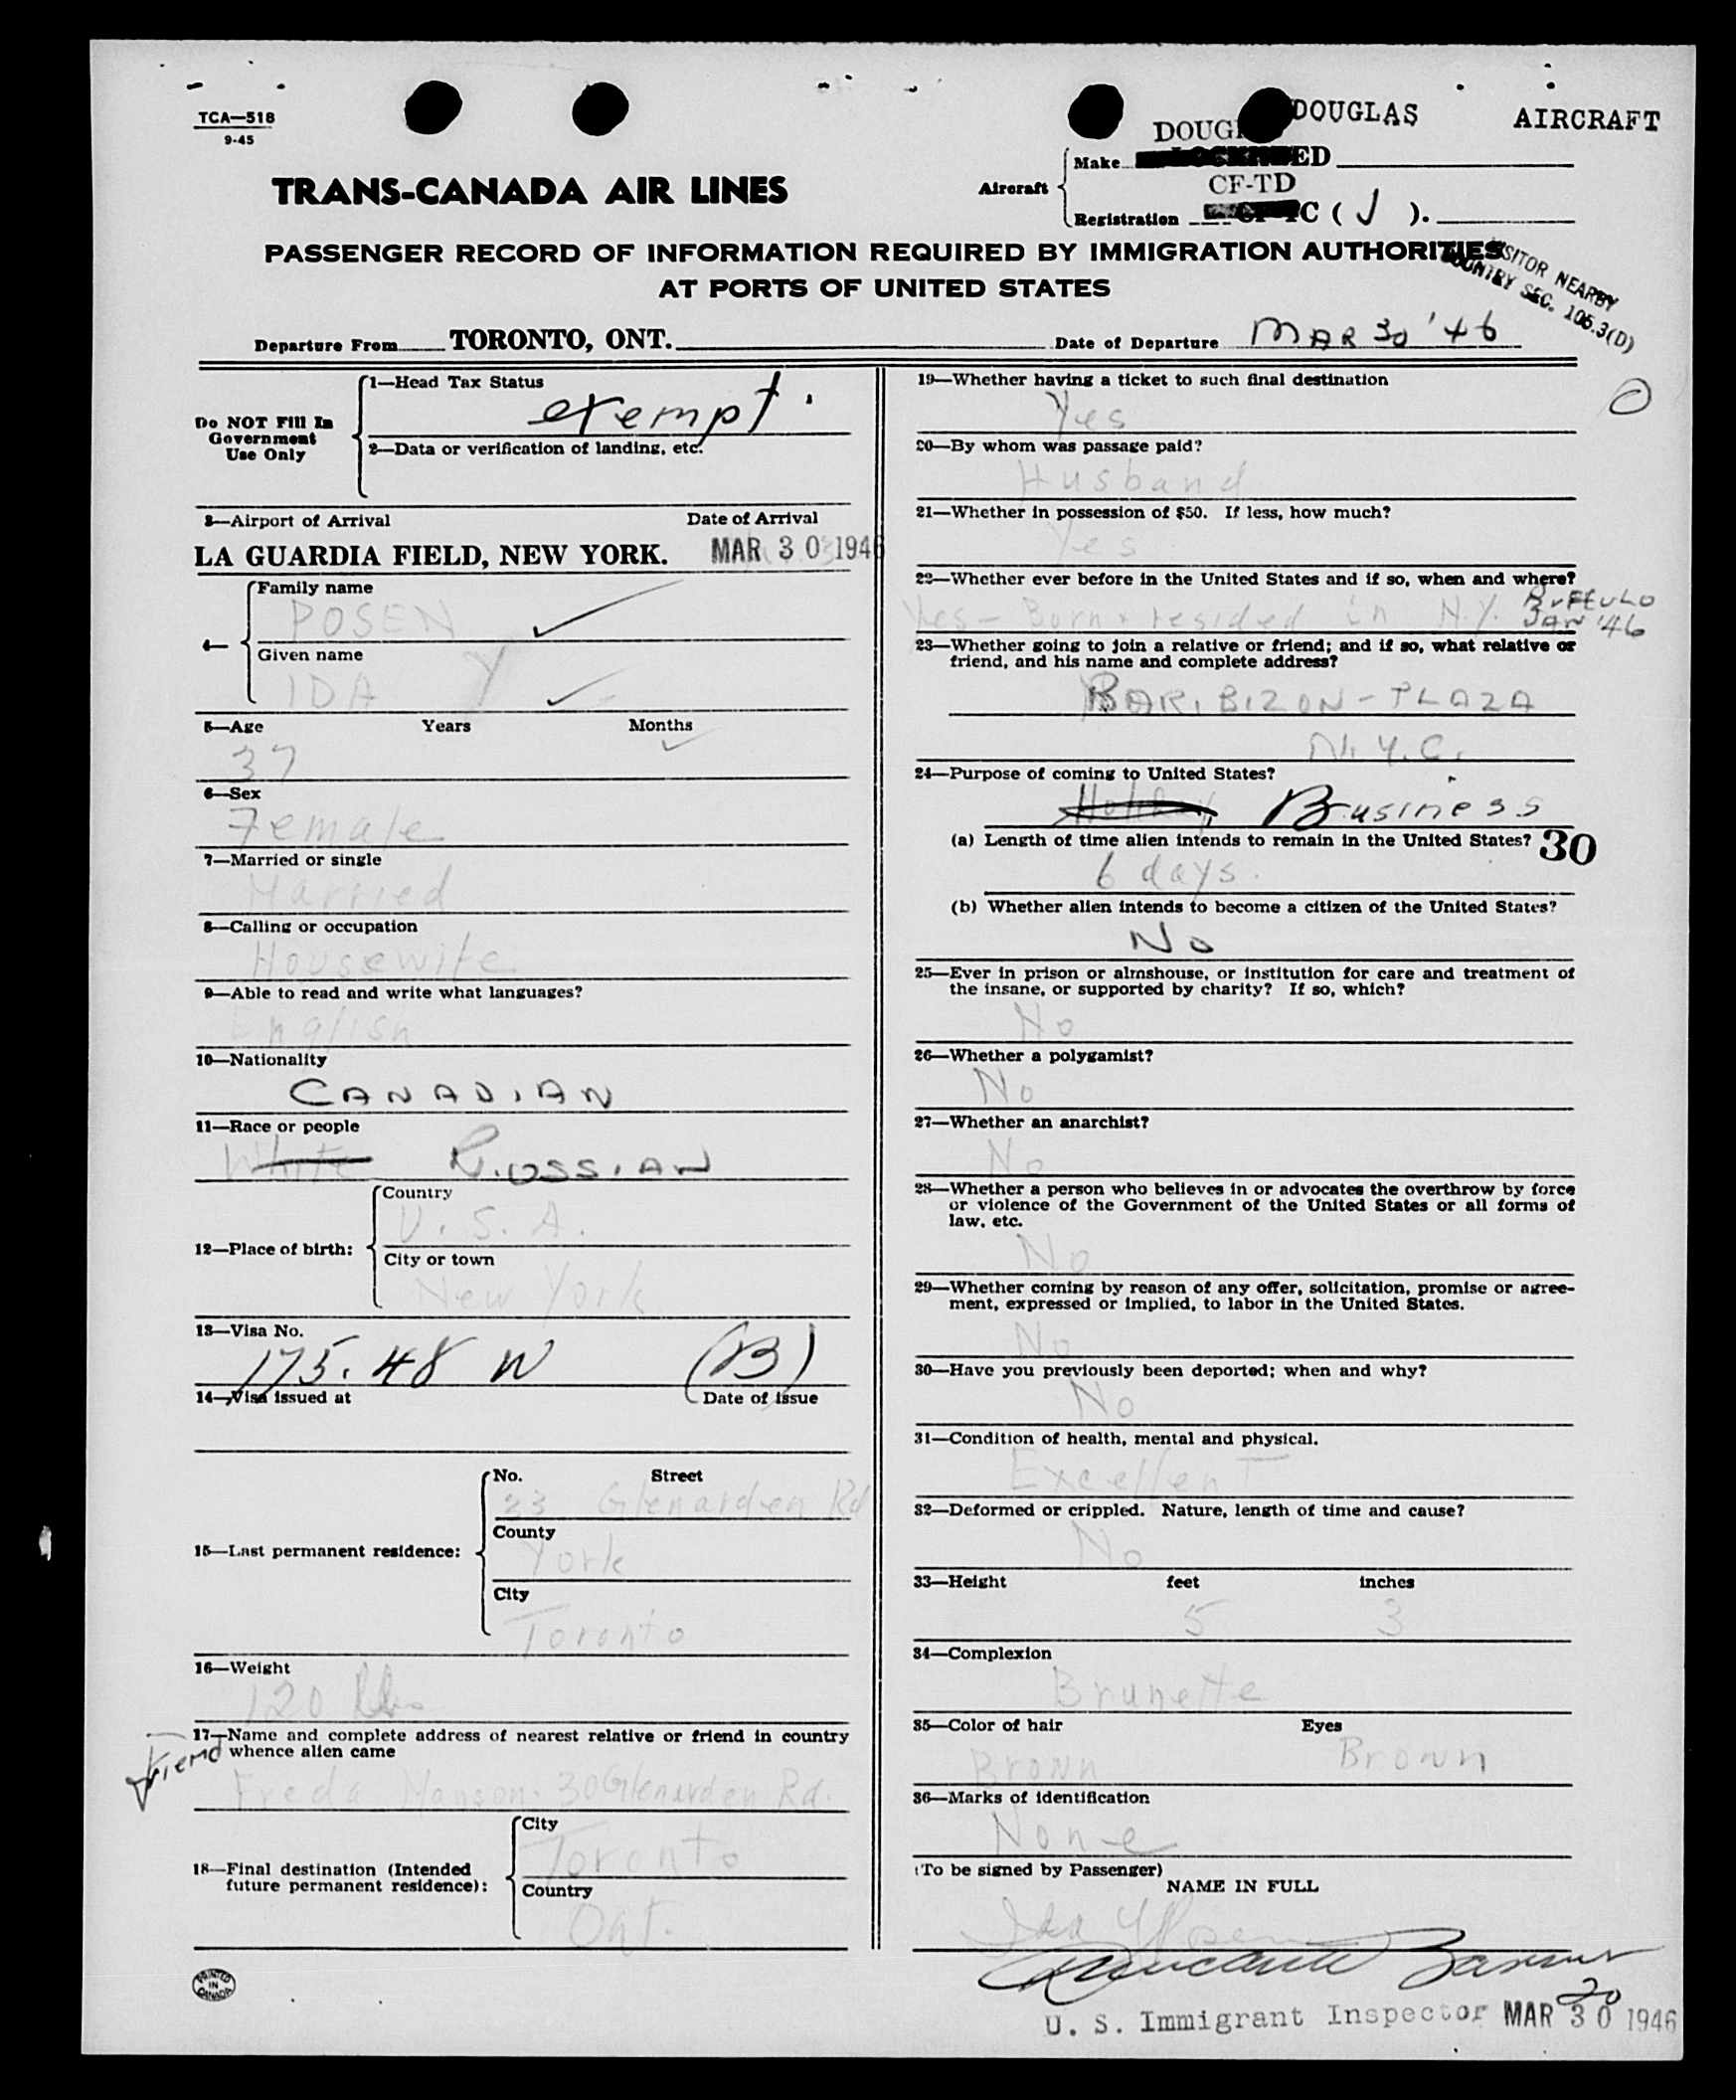 TCA—518
9-45
DOUGLAS AIRCRAFT
DOUGL
Make ED
TRANS-CANADA AIR LINES
Aircraft
CF-TD
Registration C ( J ).
PASSENGER RECORD OF INFORMATION REQUIRED BY IMMIGRATION AUTHORITIES
AT PORTS OF UNITED STATES
VISITOR NEARBY
COUNTRY SEC. 105.3(D)
Departure From TORONTO, ONT.
Date of Departure MAR 30 '46
Do NOT Fill In
Government
Use Only
1—Head Tax Status
exempt
2—Data or verification of landing, etc.
3—Airport of Arrival Date of Arrival
LA GUARDIA FIELD, NEW YORK. MAR 30 1946
4—
Family name
POSEN
Given name
IDA Y
5—Age Years Months
37
6—Sex
Female
7—Married or single
Married
8—Calling or occupation
Housewife
9—Able to read and write what languages?
English
10—Nationality
CANADIAN
11—Race or people
White RUSSIAN
12—Place of birth:
Country
U.S.A.
City or town
New York
13—Visa No.
175.48 W (B)
14—Visa issued at Date of issue
15—Last permanent residence:
No. Street
23 Glenarden Rd
County
York
City
Toronto
16—Weight
120 lbs
17—Name and complete address of nearest relative or friend in country
whence alien came
friend
Freda Manson. 30 Glenarden Rd.
18—Final destination (Intended
future permanent residence):
City
Toronto
Country
Ont.
PRINTED
IN
CANADA
19—Whether having a ticket to such final destination
Yes
20—By whom was passage paid?
Husband
21—Whether in possession of $50. If less, how much?
Yes
22—Whether ever before in the United States and if so, when and where?
Yes - Born + resided in N.Y. BUFFULO
JAN '46
23—Whether going to join a relative or friend; and if so, what relative or
friend, and his name and complete address?
BARIBIZON-PLAZA
N.Y.C.
24—Purpose of coming to United States?
Holiday Business
(a) Length of time alien intends to remain in the United States? 30
6 days.
(b) Whether alien intends to become a citizen of the United States?
No
25—Ever in prison or almshouse, or institution for care and treatment of
the insane, or supported by charity? If so, which?
No
26—Whether a polygamist?
No
27—Whether an anarchist?
No
28—Whether a person who believes in or advocates the overthrow by force
or violence of the Government of the United States or all forms of
law, etc.
No
29—Whether coming by reason of any offer, solicitation, promise or agree-
ment, expressed or implied, to labor in the United States.
No
30—Have you previously been deported; when and why?
No
31—Condition of health, mental and physical.
Excellent
32—Deformed or crippled. Nature, length of time and cause?
No
33—Height feet inches
5 3
34—Complexion
Brunette
35—Color of hair Eyes
Brown Brown
36—Marks of identification
None
(To be signed by Passenger)
NAME IN FULL
Ida Y Posen
U. S. Immigrant Inspector MAR 30 1946